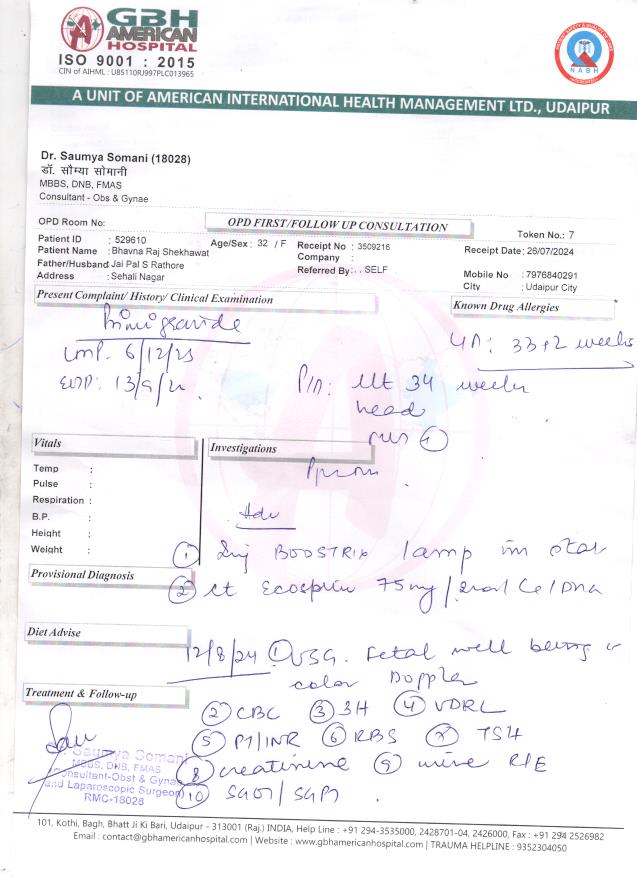 GBH
AMERICAN
HOSPITAL
ISO 9001 : 2015
CIN of AIHML : U85110RJ997PLC013965
NABH
A UNIT OF AMERICAN INTERNATIONAL HEALTH MANAGEMENT LTD., UDAIPUR
Dr. Saumya Somani (18028)
डॉ. सौम्या सोमानी
MBBS, DNB, FMAS
Consultant - Obs & Gynae
OPD Room No:
OPD FIRST/FOLLOW UP CONSULTATION
Token No.: 7
Patient ID : 529610
Age/Sex : 32 / F
Receipt No : 3509216
Receipt Date: 26/07/2024
Patient Name : Bhavna Raj Shekhawat
Company :
Father/Husband : Jai Pal S Rathore
Referred By: . . SELF
Mobile No : 7976840291
Address : Sehali Nagar
City : Udaipur City
Present Complaint/ History/ Clinical Examination
Known Drug Allergies
Primigravida
LMP. 6/12/23
33+2 weeks
EDD: 13/9/24.
P/A: Ut 34 weeks
head
Vitals
Investigations
Temp :
Pulse :
Respiration :
B.P. :
Height :
Weight :
Adv
① Inj BOOSTRIX 1amp im stat
Provisional Diagnosis
② ct Ecosprin 75mg
Diet Advise
12/8/24 ① USG. Fetal well being
color Doppler
Treatment & Follow-up
② CBC ③ 3H ④ VDRL
⑤ PT/INR ⑥ RBS ⑦ TSH
⑧ creatinine ⑨ urine R/E
⑩ SGOT/SGPT.
Dr. Saumya Somani
MBBS, DNB, FMAS
Consultant-Obst & Gynae
and Laparoscopic Surgeon
RMC-18028
101, Kothi, Bagh, Bhatt Ji Ki Bari, Udaipur - 313001 (Raj.) INDIA, Help Line : +91 294-3535000, 2428701-04, 2426000, Fax : +91 294 2526982
Email : contact@gbhamericanhospital.com | Website : www.gbhamericanhospital.com | TRAUMA HELPLINE : 9352304050